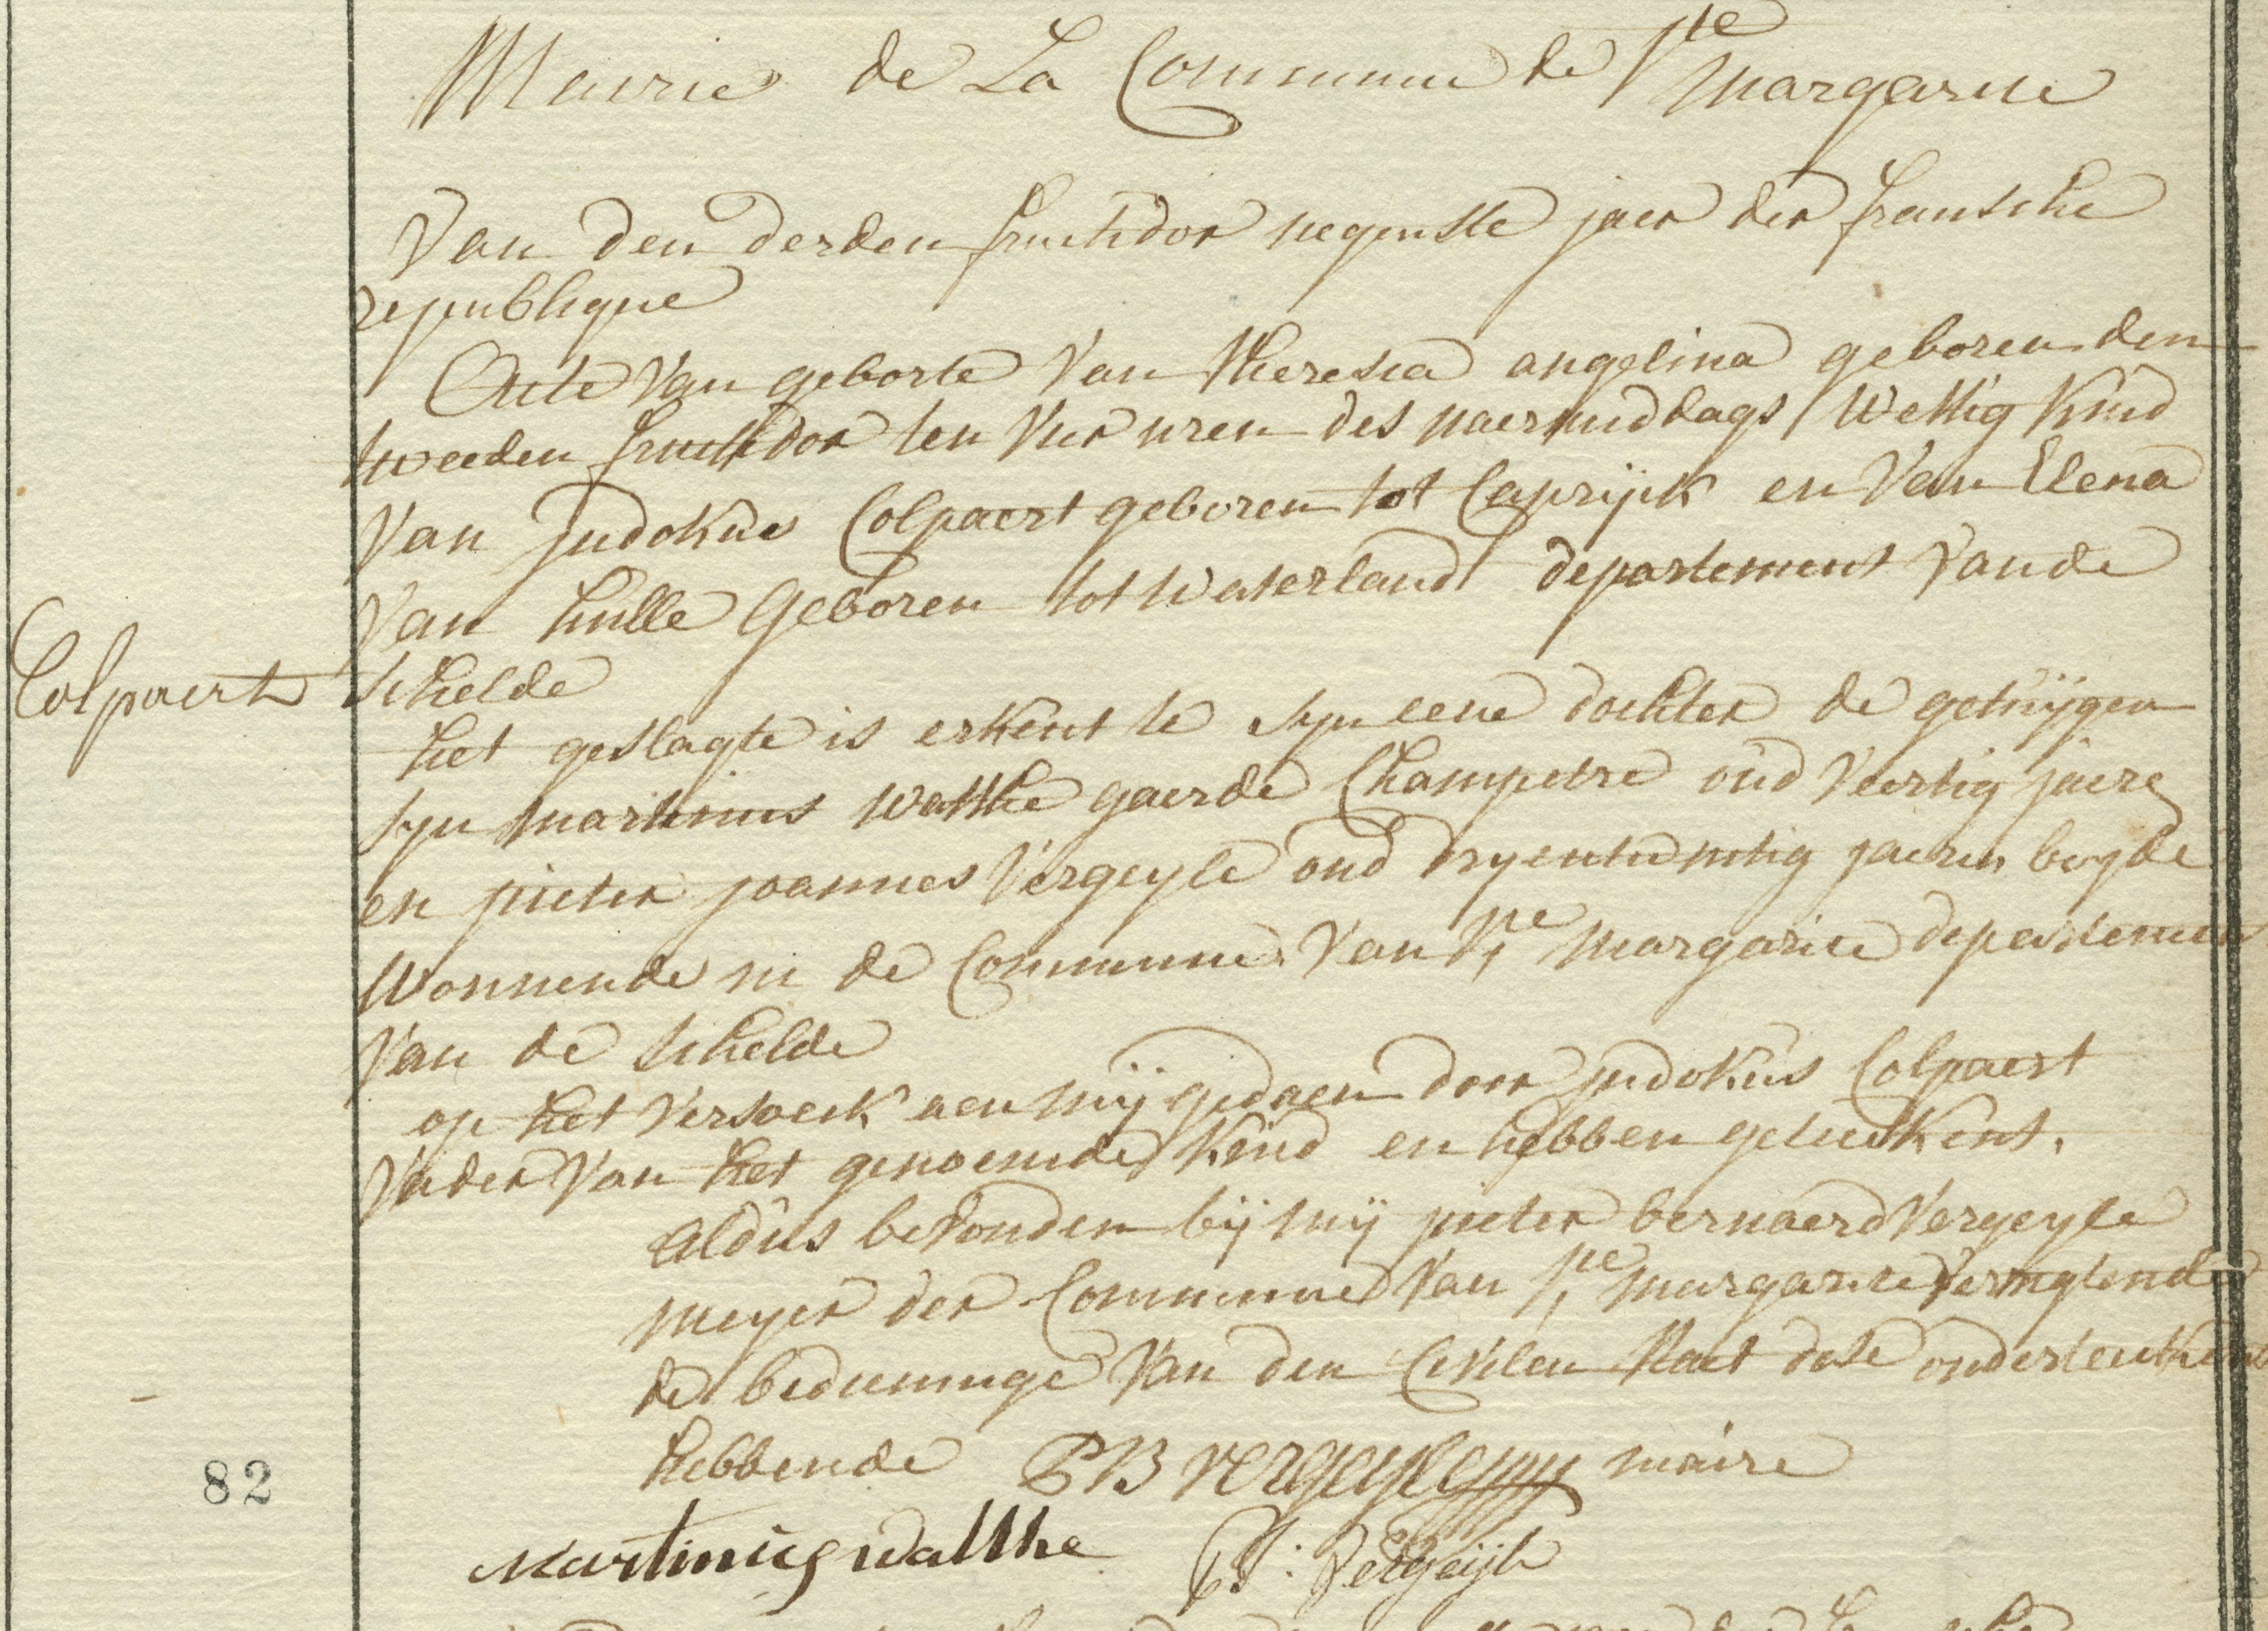 Mairie de La Commune de Ste Margarite
Van den derden fructidor negenste jaer der fransche
republique
Acte van geborte van Theresia angelina geboren den
tweeden fructidor ten vier uren des naermiddags Wettig kind
Van Judokus Colpaert geboren tot Caprijk en Van Elena
Van hulle Geboren tot Waterland departement vande
Colpaert
schelde
het geslagte is erkent te syn eene dochter de getuijgen
syn martinus Watthe gaerde Champetre oud veertig jaere
en pieter joannes Vergeyle oud dryentwintig jaeren beyde
Wonnende in de Commune van Ste Margarite departement
Van de schelde
op het versoeck aen mij gedaen door judokus Colpaert
Vader Van het genoemde kind en hebben geteekent.
aldus bevonden bij mij pieter bernaerd Vergeyle
meyer der Commune van Ste Margarite
de bedieninge Van den Civilen staet dese onderteekent
hebbende PB vergeyle maire
82
Martinus watthe PJ: Vergeijle